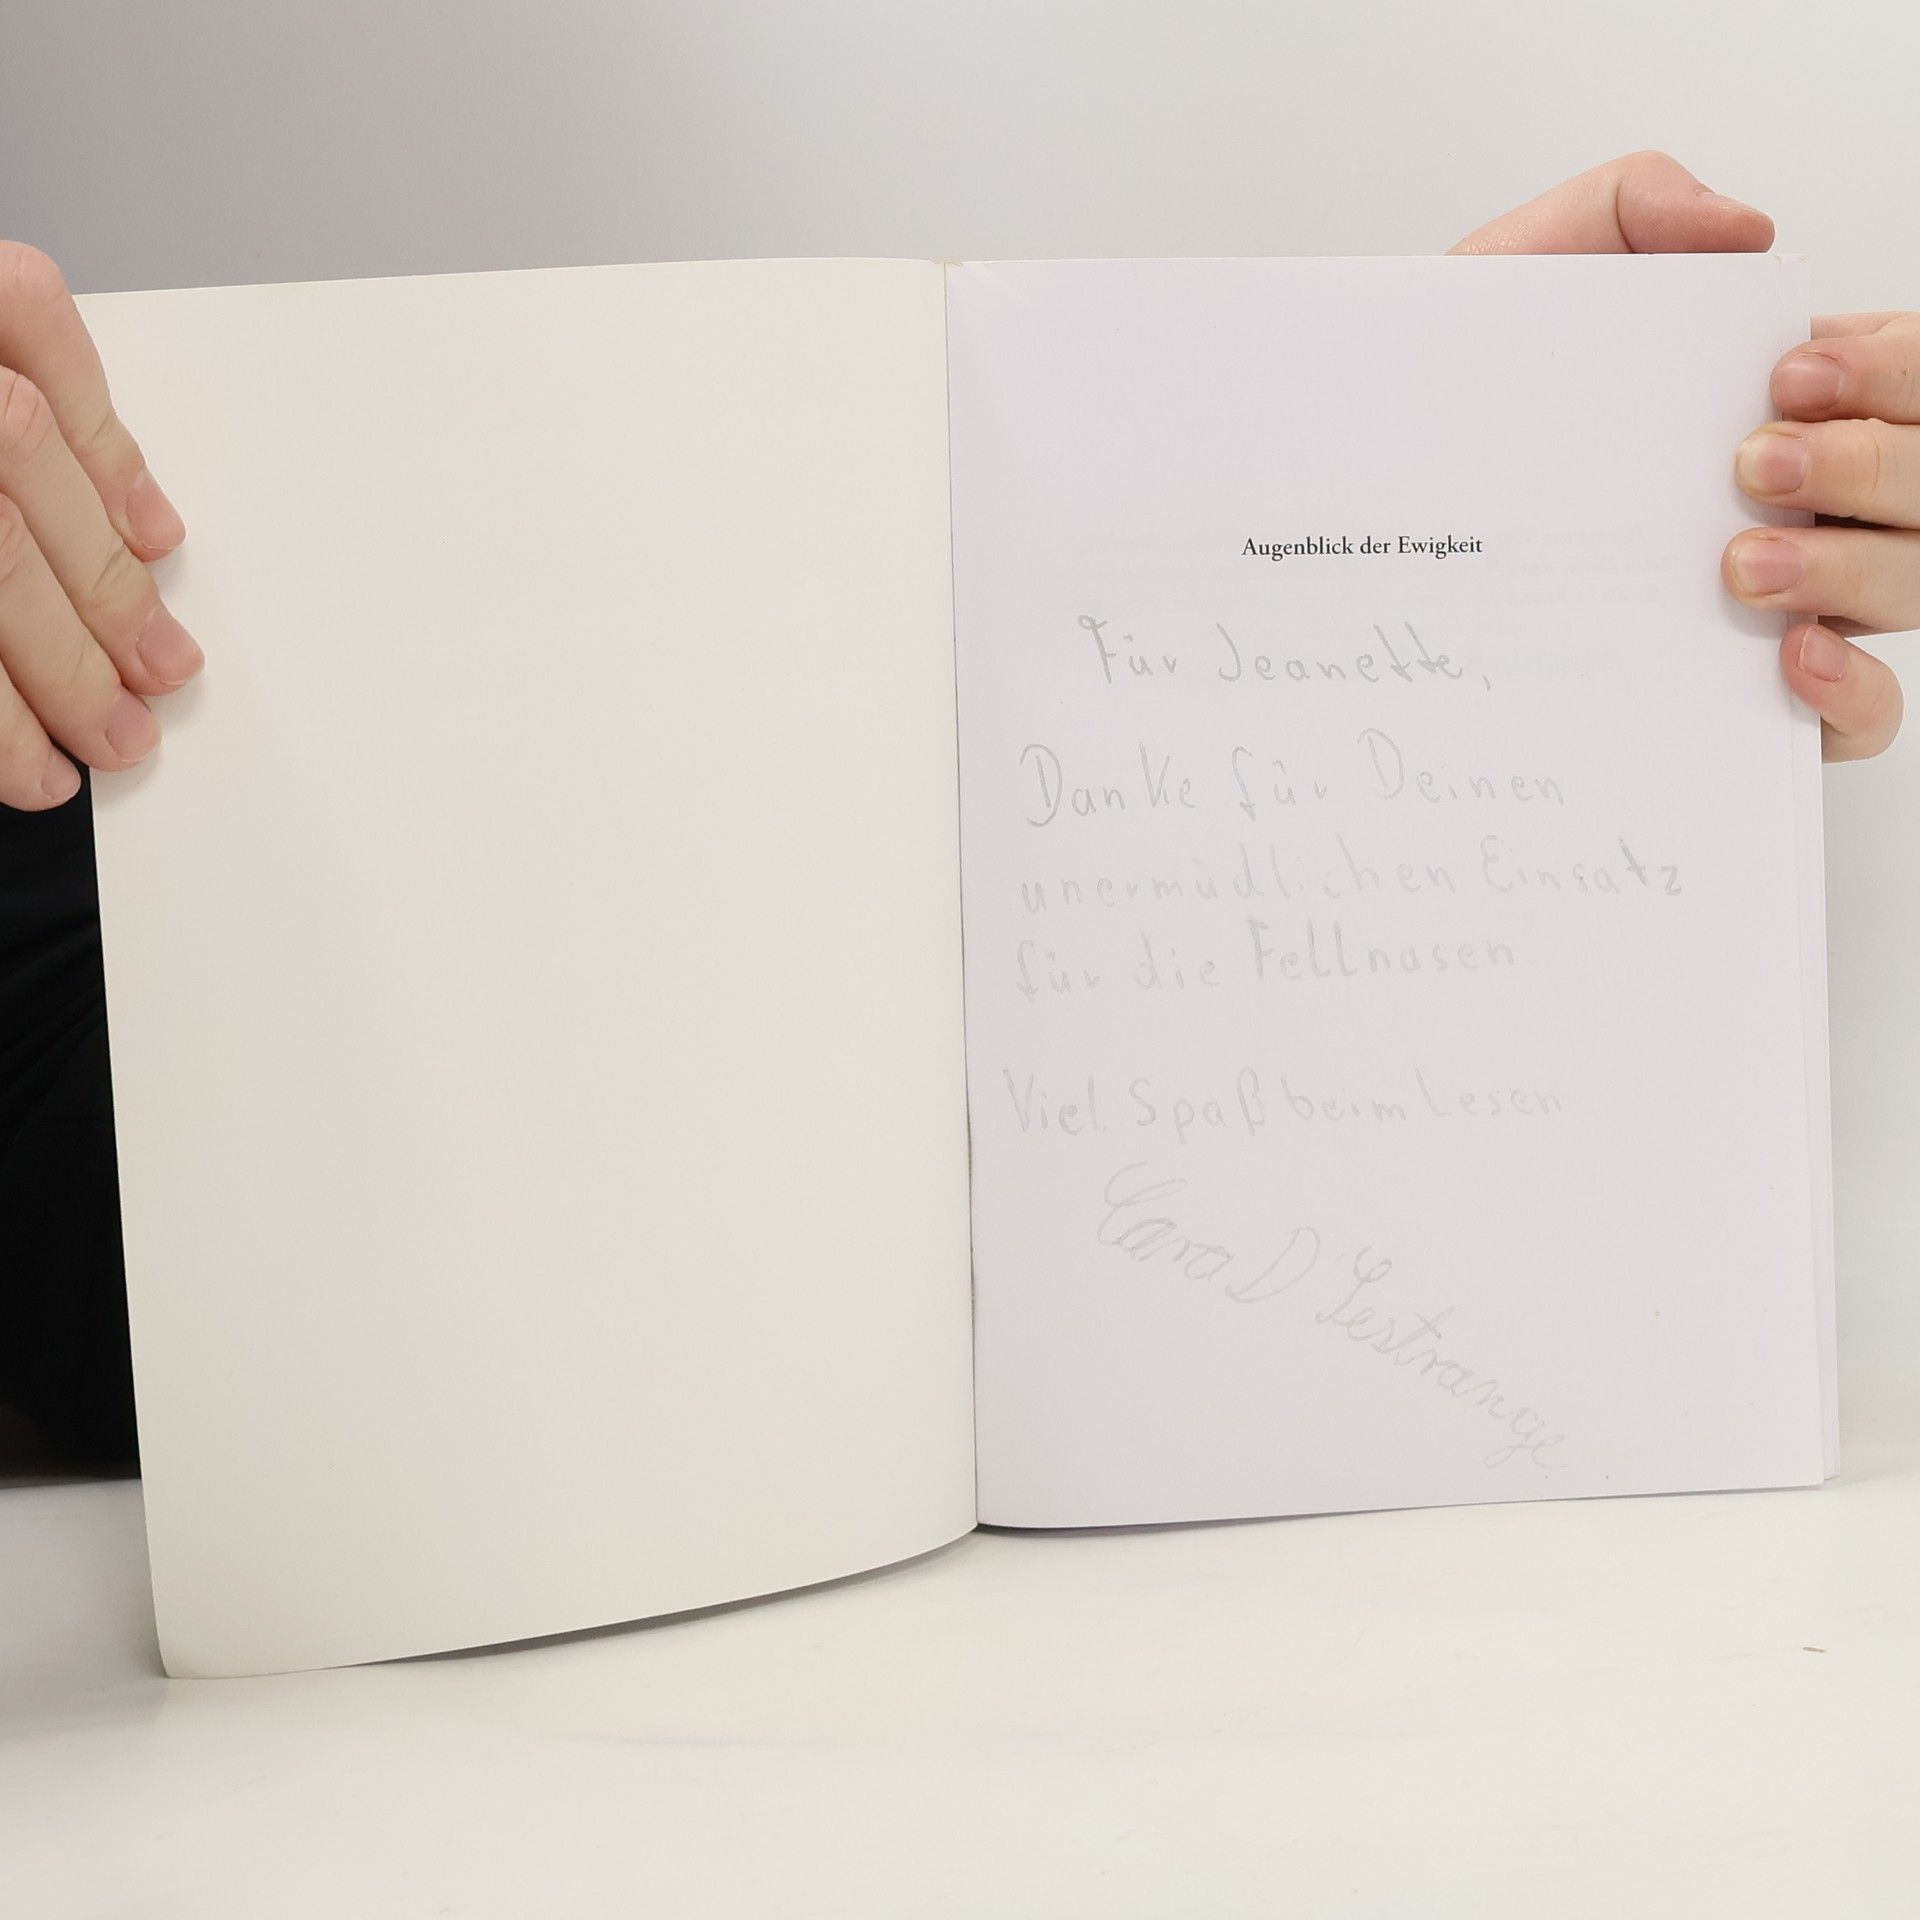 Augenblick der Ewigkeit
Für Jeanette,
Danke für Deinen
unermüdlichen Einsatz
für die Fellnasen
Viel Spaß beim Lesen
Cara D'Lestrange